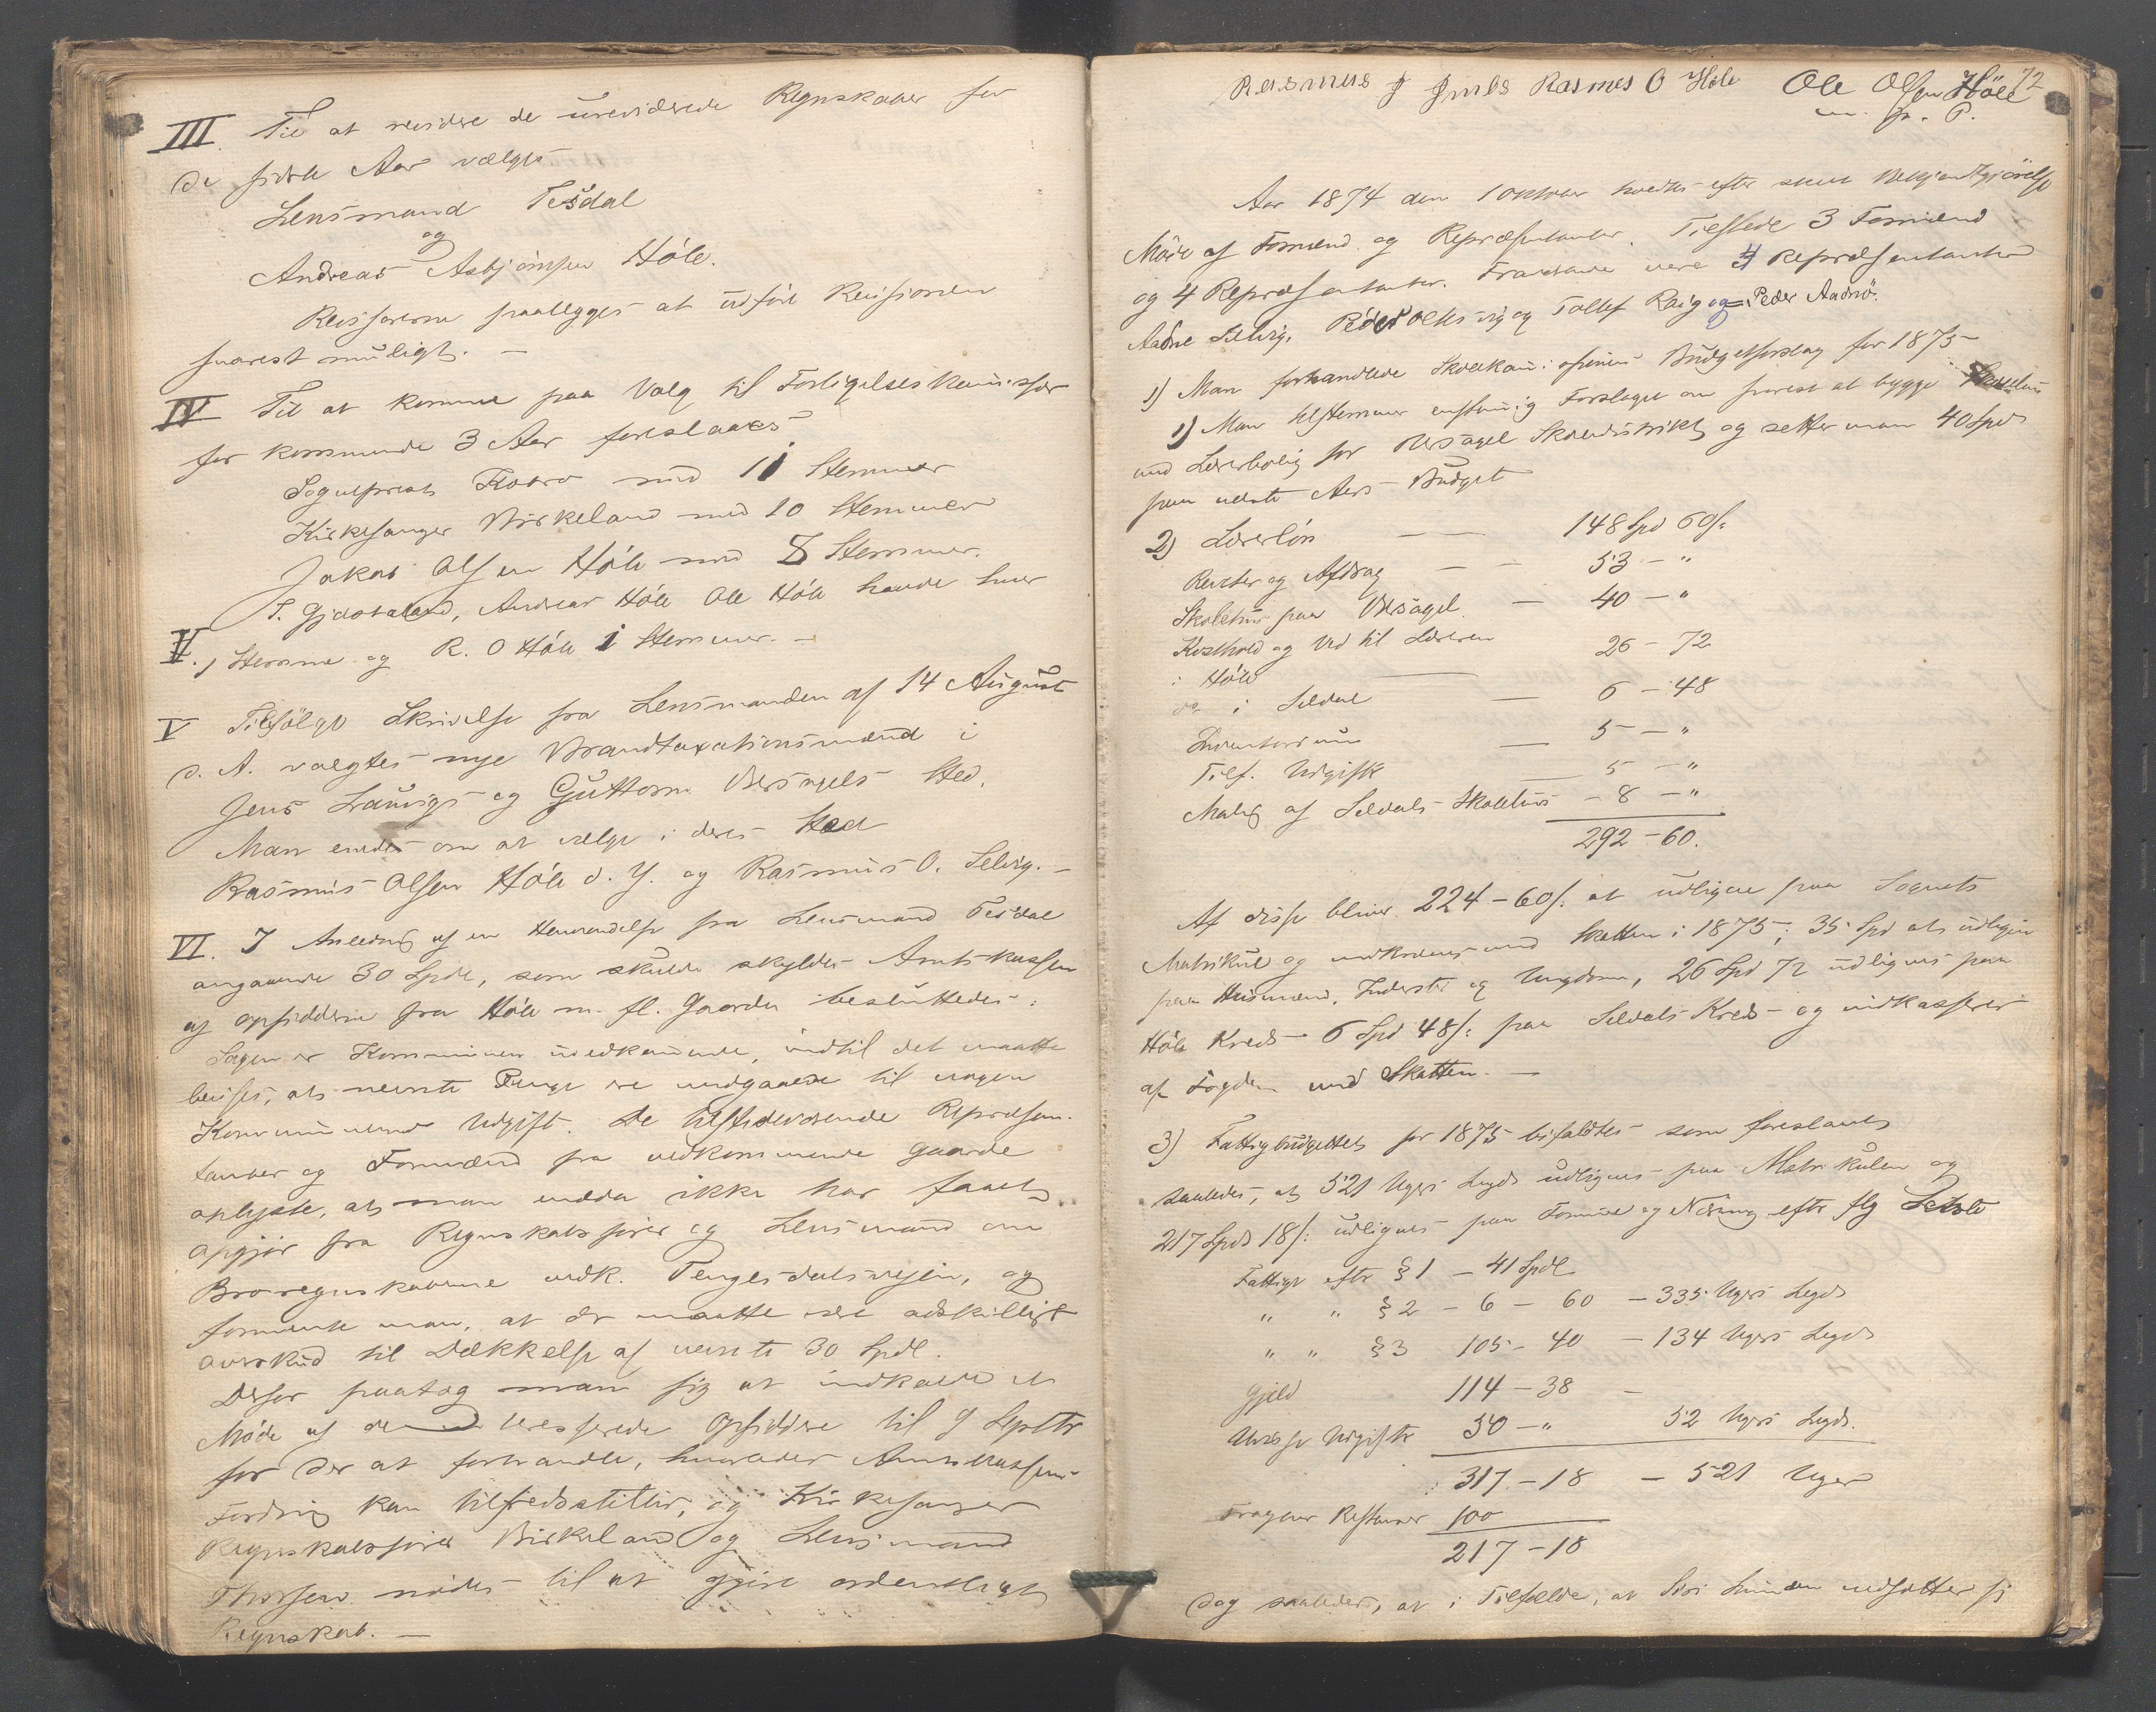 III. Til at revidere de ureviderede Regnskaber for
de sidste Aar vælges
Lensmand Tesdal
og
Andreas Asbjørnsen Høle.
Revisorerne paalegges at udføre Revisionen
snarest muligt. —
IV Til at komme paa Valg til Forligelseskommissær
for kommende 3 Aar foreslaaes
Sogneprest Koare med 11 Stemmer
Kirkesanger Birkeland med 10 Stemmer
Jakob Olsen Høle med 8 Stemmer.
T. Gjødstaland, Andreas Høle Ole Høle havde hver
V. 1 Stemme og R. O Høle 1 Stemmer. —
V Tilfølge Skrivelse fra Lensmanden af 14 August
d. A. valgtes nye Brandtaxationsmænd i
Jens Lauvigs og Guttorm Bersagels Sted.
Man enedes om at vælge i deres Sted
Rasmus Olsen Høle d. Y. og Rasmus O. Selvig. —
VI. I Anledning af en Henvendelse fra Lensmand Tesdal
angaaende 30 Spdl, som skulde skyldes Amtskassen
af Opsidderne fra Høle m. fl. Gaarder besluttedes:
Sagen er Kommunen uvedkommende, indtil det maatte
bevises, at nævnte Penge ere medgaaede til nogen
Kommunens Udgift. De tilstedeværende Repræsen-
tanter og Formænd fra vedkommende Gaarde
oplyste, at man endda ikke har faaet
opgjør fra Regnskabsfører og Lensmand om
Broregnskaberne vedk. Tengesdalsvejen, og
formente man, at der maatte være adskilligt
overskud til Dækkelse af nævnte 30 Spdl.
Derfor paatog man sig at indkalde et
Møde af de interesserede Opsiddere til 9 Septbr
for der at forhandle, hvorledes Amtskassens
Fordring kan tilfredsstilles, og Kirkesanger
Regnskabsfører Birkeland og Lensmand
Thorsen mødes til at gjøre ordentligt
Regnskab. —
72
Rasmus J Jmes Rasmes O Høle Ole Olsen Höle
m. p. P.
Aar 1874 den 1 Oktober holdtes efter skeet Bekjendtgjörelse
Møde af Formænd og Repræsentanter. Tilstede 3 Formænd
og 4 Repræsentanter. Fraværende vare 4 Repræsentanter
Aadne Selvig, Peder Oltesvig og Tollef Raig og Peder Aadnø.
1) Man forhandlede Skolekommissionens Budgetforslag for 1875
1) Man tilstemmer enstemmig Forslaget om snarest at bygge Skolehus
med Lærerbolig for Bersagel Skoledistrikt og setter man 40 Spd
paa næste Aars Budget
2) Lærerløn — — 148 Spd 60 s:
Renter og Afdrag — — 53 — "
Skolehus paa Bersagel — 40 — "
Kosthold og Ved til Læreren
i Høle — 26 — 72
do i Seldal — 6 — 48
Inventarium — 5 — "
Tilf. Udgifter — 5 — "
Maling af Seldals Skolehus — 8 — "
292 — 60.
Af disse bliver 224 — 60 s: at udligne paa Sognets
Matrikul og indkræves med Skatten i 1875; 35 Spd at udligne
paa Husmænd, Inderster og Ungdom, 26 Spd 72 udlignes paa
Høle Kreds — 6 Spd 48 s: paa Seldals Kreds — og indkasserer
af Fogden med Skatten. —
3) Fattigbudgettet for 1875 bifaldtes som foreslaaet
saaledes, at 521 Ugers Legd udlignes paa Matrikulen og
217 Spd 18 s: udlignes paa Formue og Næring efter flg Liste
Fattige efter § 1 — 41 Spdl
" " § 2 — 6 — 60 — 335 Ugers Legd
" " § 3 105 — 40 — 134 Ugers Legd
Gjeld 114 — 38 —
Uvisse Udgifter 50 — " 52 Ugers Legd.
317 — 18 — 521 Uger
Fragaar Restancer 100
217 — 18
Dog saaledes, at i Tilfælde, at Siri undsætter sig